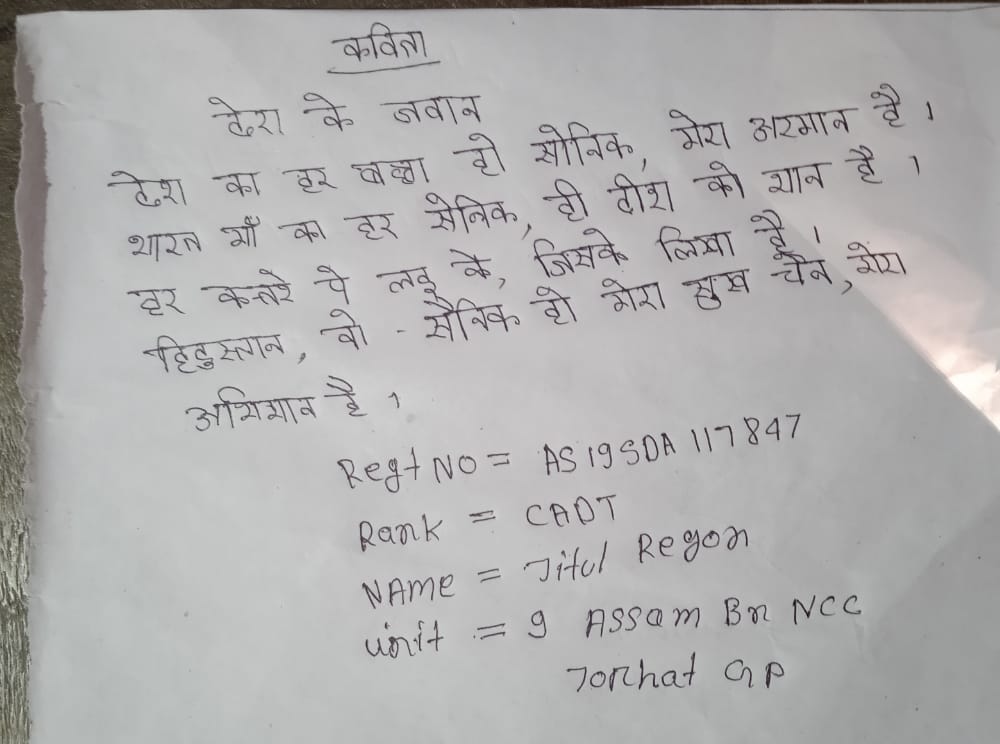 कविता
देश के जवान
देश का हर बच्चा हो सोनिक, मेरा अरमान है।
भारत माँ का हर सेनिक, ही दीश को शान है।
हर कतरे पे लहू के, जिसके लिखा है।
हिदुस्तान, वो - सैनिक हो मेरा सुख चैन, मेरा
अभिमान है।
Regt NO = AS19SDA117847
Rank = CADT
NAme = Jitul Regon
unit = 9 ASSam Bn NCC
Jorhat GP